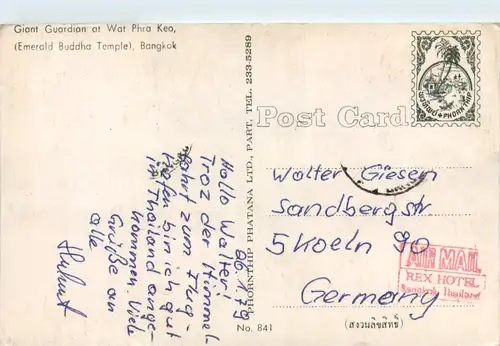 Giant Guardian at Wat Phra Keo,
(Emerald Buddha Temple), Bangkok
PHORNTHIP PHATANA LTD., PART. TEL. 233-5289
Post Card
PHORN TIP
Hallo Walter!
Troz der Himmel
fahrt zum Flug-
hafen bin ich gut
in Thailand ange-
kommen. Viele
Grüße an
alle
Walter Giesen
Sandbergstr
5 Koeln 90
Germany
AIR MAIL
REX HOTEL
Bangkok Thailand
No. 841
(สงวนลิขสิทธิ์)